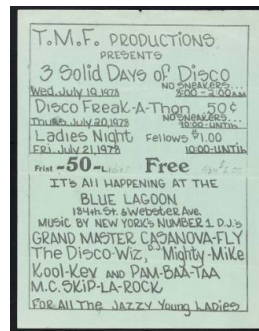 T.M.F. PRODUCTIONS
PRESENTS
3 Solid Days of Disco
NO SNEAKERS...
Wed. July 19, 1978 8:00 - 2:00 A.M
Disco Freak-A-Thon 50¢
NO SNEAKERS...
Thurs. July 20, 1978 10:00-UNTIL
Ladies Night Fellows $1.00
Fri. July 21, 1978 10:00-UNTIL
Frist -50- Ladies Free
ITS All HAPPENING AT THE
BLUE LAGOON
184th St. & Webster Ave.
MUSIC BY NEW YORK'S NUMBER 1 D.J.'s
GRAND MASTER CASANOVA-FLY
The Disco-Wiz, Mighty-Mike
Kool-Kev AND PAM-BAA-TAA
M.C. SKIP-LA-ROCK
FOR All The JAZZY Young LADIES